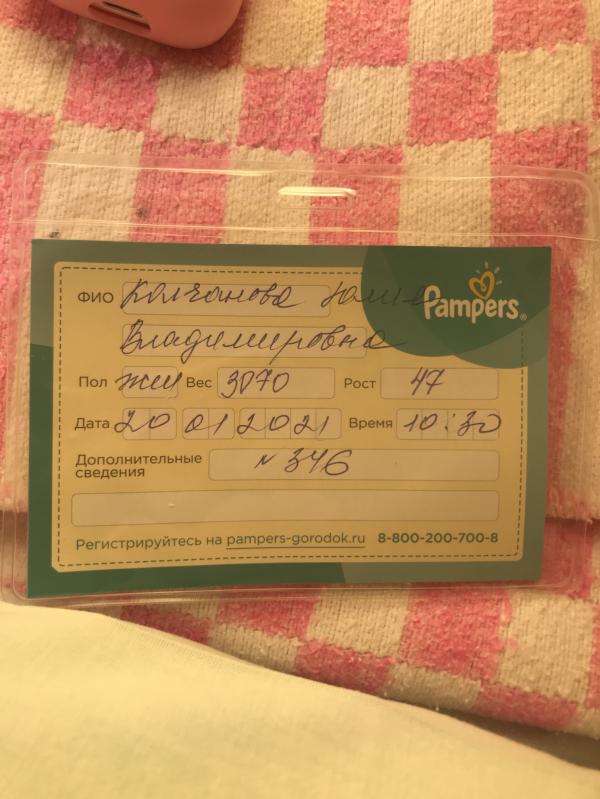 ФИО Колчанова Юлия
Pampers®
Владимировна
Пол жен Вес 3070 Рост 47
Дата 20 01 2021 Время 10:30
Дополнительные сведения N 346
Регистрируйтесь на pampers-gorodok.ru 8-800-200-700-8